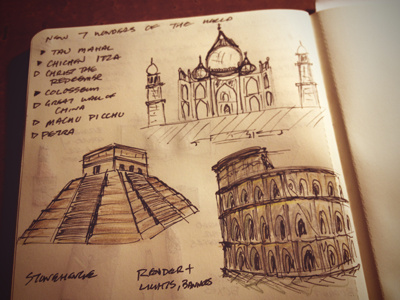 NEW 7 WONDERS OF THE WORLD
TAJ MAHAL
CHICHEN ITZA
CHRIST THE
REDEEMER
COLOSSEUM
GREAT WALL OF
CHINA
MACHU PICCHU
PETRA
STONEHENGE
RENDER +
LIGHTS, BANNERS